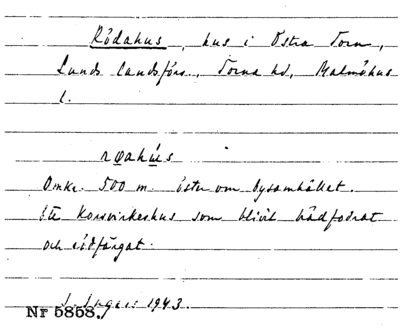 Rödahus, hus i Östra Torn,
Lunds landsförs., Torna hd, Malmöhus
l.
røahús
Omkr. 500 m öster om bysamhället.
Ett korsvirkeshus som blivit brädfodrat
och rödfärgat.
S. Ingers 1943.
Nr 5858.